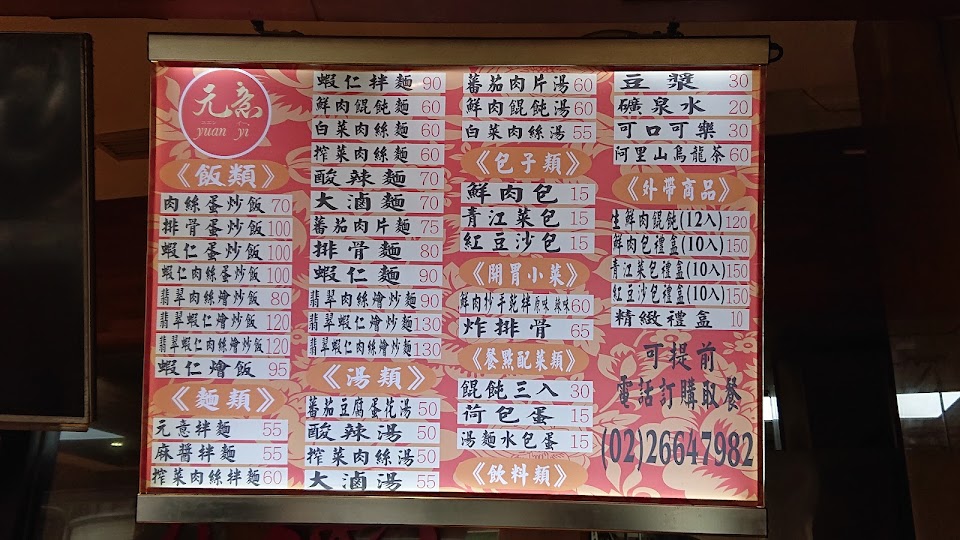 元意
yuan yi
《飯類》
肉絲蛋炒飯 70
排骨蛋炒飯 100
蝦仁蛋炒飯 100
蝦仁肉絲蛋炒飯 100
翡翠肉絲燴炒飯 80
翡翠蝦仁燴炒飯 120
翡翠蝦仁肉絲燴炒飯 120
蝦仁燴飯 95
《麵類》
元意拌麵 55
麻醬拌麵 55
搾菜肉絲拌麵 60
蝦仁拌麵 90
鮮肉餛飩麵 60
白菜肉絲麵 60
搾菜肉絲麵 60
酸辣麵 70
大滷麵 70
蕃茄肉片麵 75
排骨麵 80
蝦仁麵 90
翡翠肉絲燴炒麵 90
翡翠蝦仁燴炒麵 130
翡翠蝦仁肉絲燴炒麵 130
《湯類》
蕃茄豆腐蛋花湯 50
酸辣湯 50
搾菜肉絲湯 50
大滷湯 55
蕃茄肉片湯 60
鮮肉餛飩湯 60
白菜肉絲湯 55
《包子類》
鮮肉包 15
青江菜包 15
紅豆沙包 15
《開胃小菜》
鮮肉抄手乾拌 原味 辣味 60
炸排骨 65
《餐點配菜類》
餛飩三入 30
荷包蛋 15
湯麵水包蛋 15
《飲料類》
豆漿 30
礦泉水 20
可口可樂 30
阿里山烏龍茶 60
《外帶商品》
生鮮肉餛飩(12入) 120
鮮肉包禮盒(10入) 150
青江菜包禮盒(10入) 150
紅豆沙包禮盒(10入) 150
精緻禮盒 10
可提前
電話訂購取餐
(02)26647982